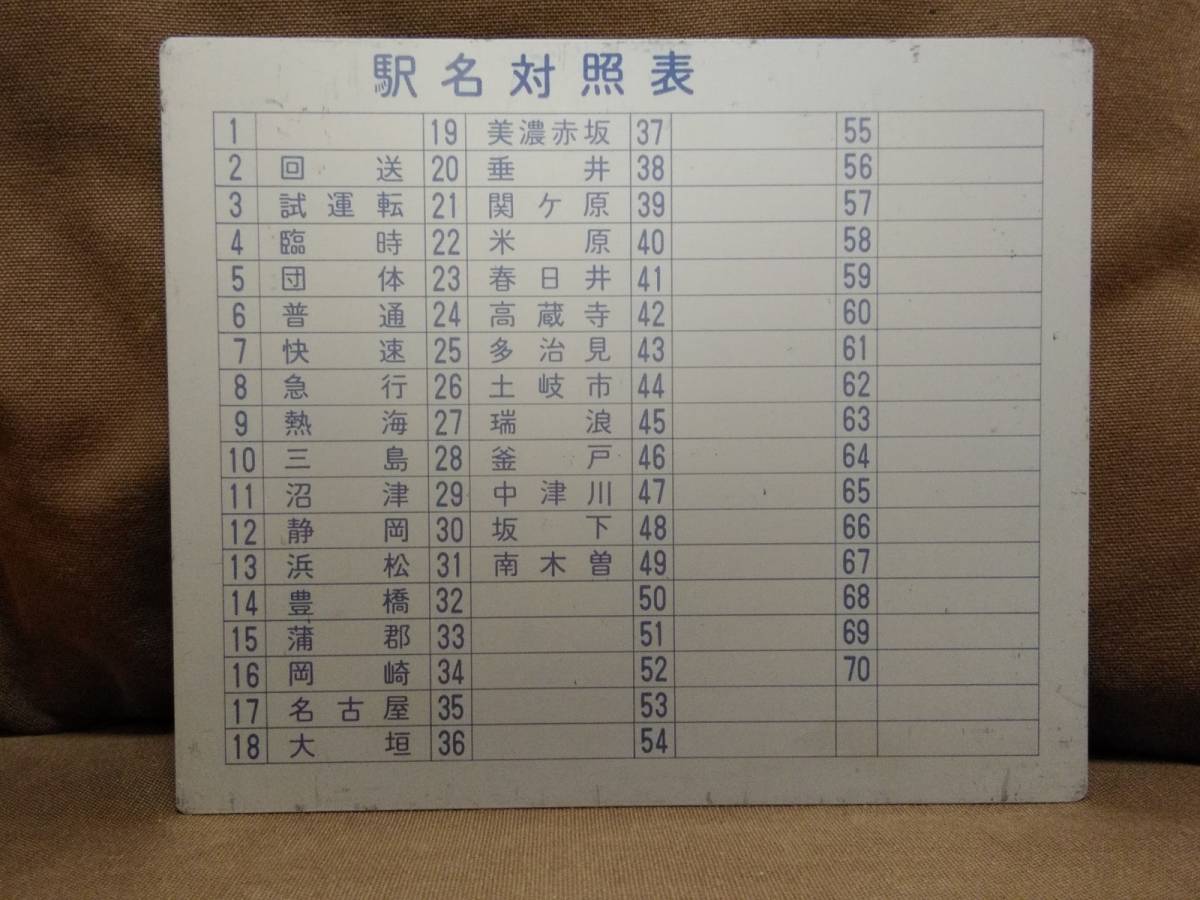 駅名対照表
1 19 美濃赤坂 37 55
2 回送 20 垂井 38 56
3 試運転 21 関ケ原 39 57
4 臨時 22 米原 40 58
5 団体 23 春日井 41 59
6 普通 24 高蔵寺 42 60
7 快速 25 多治見 43 61
8 急行 26 土岐市 44 62
9 熱海 27 瑞浪 45 63
10 三島 28 釜戸 46 64
11 沼津 29 中津川 47 65
12 静岡 30 坂下 48 66
13 浜松 31 南木曽 49 67
14 豊橋 32 50 68
15 蒲郡 33 51 69
16 岡崎 34 52 70
17 名古屋 35 53
18 大垣 36 54